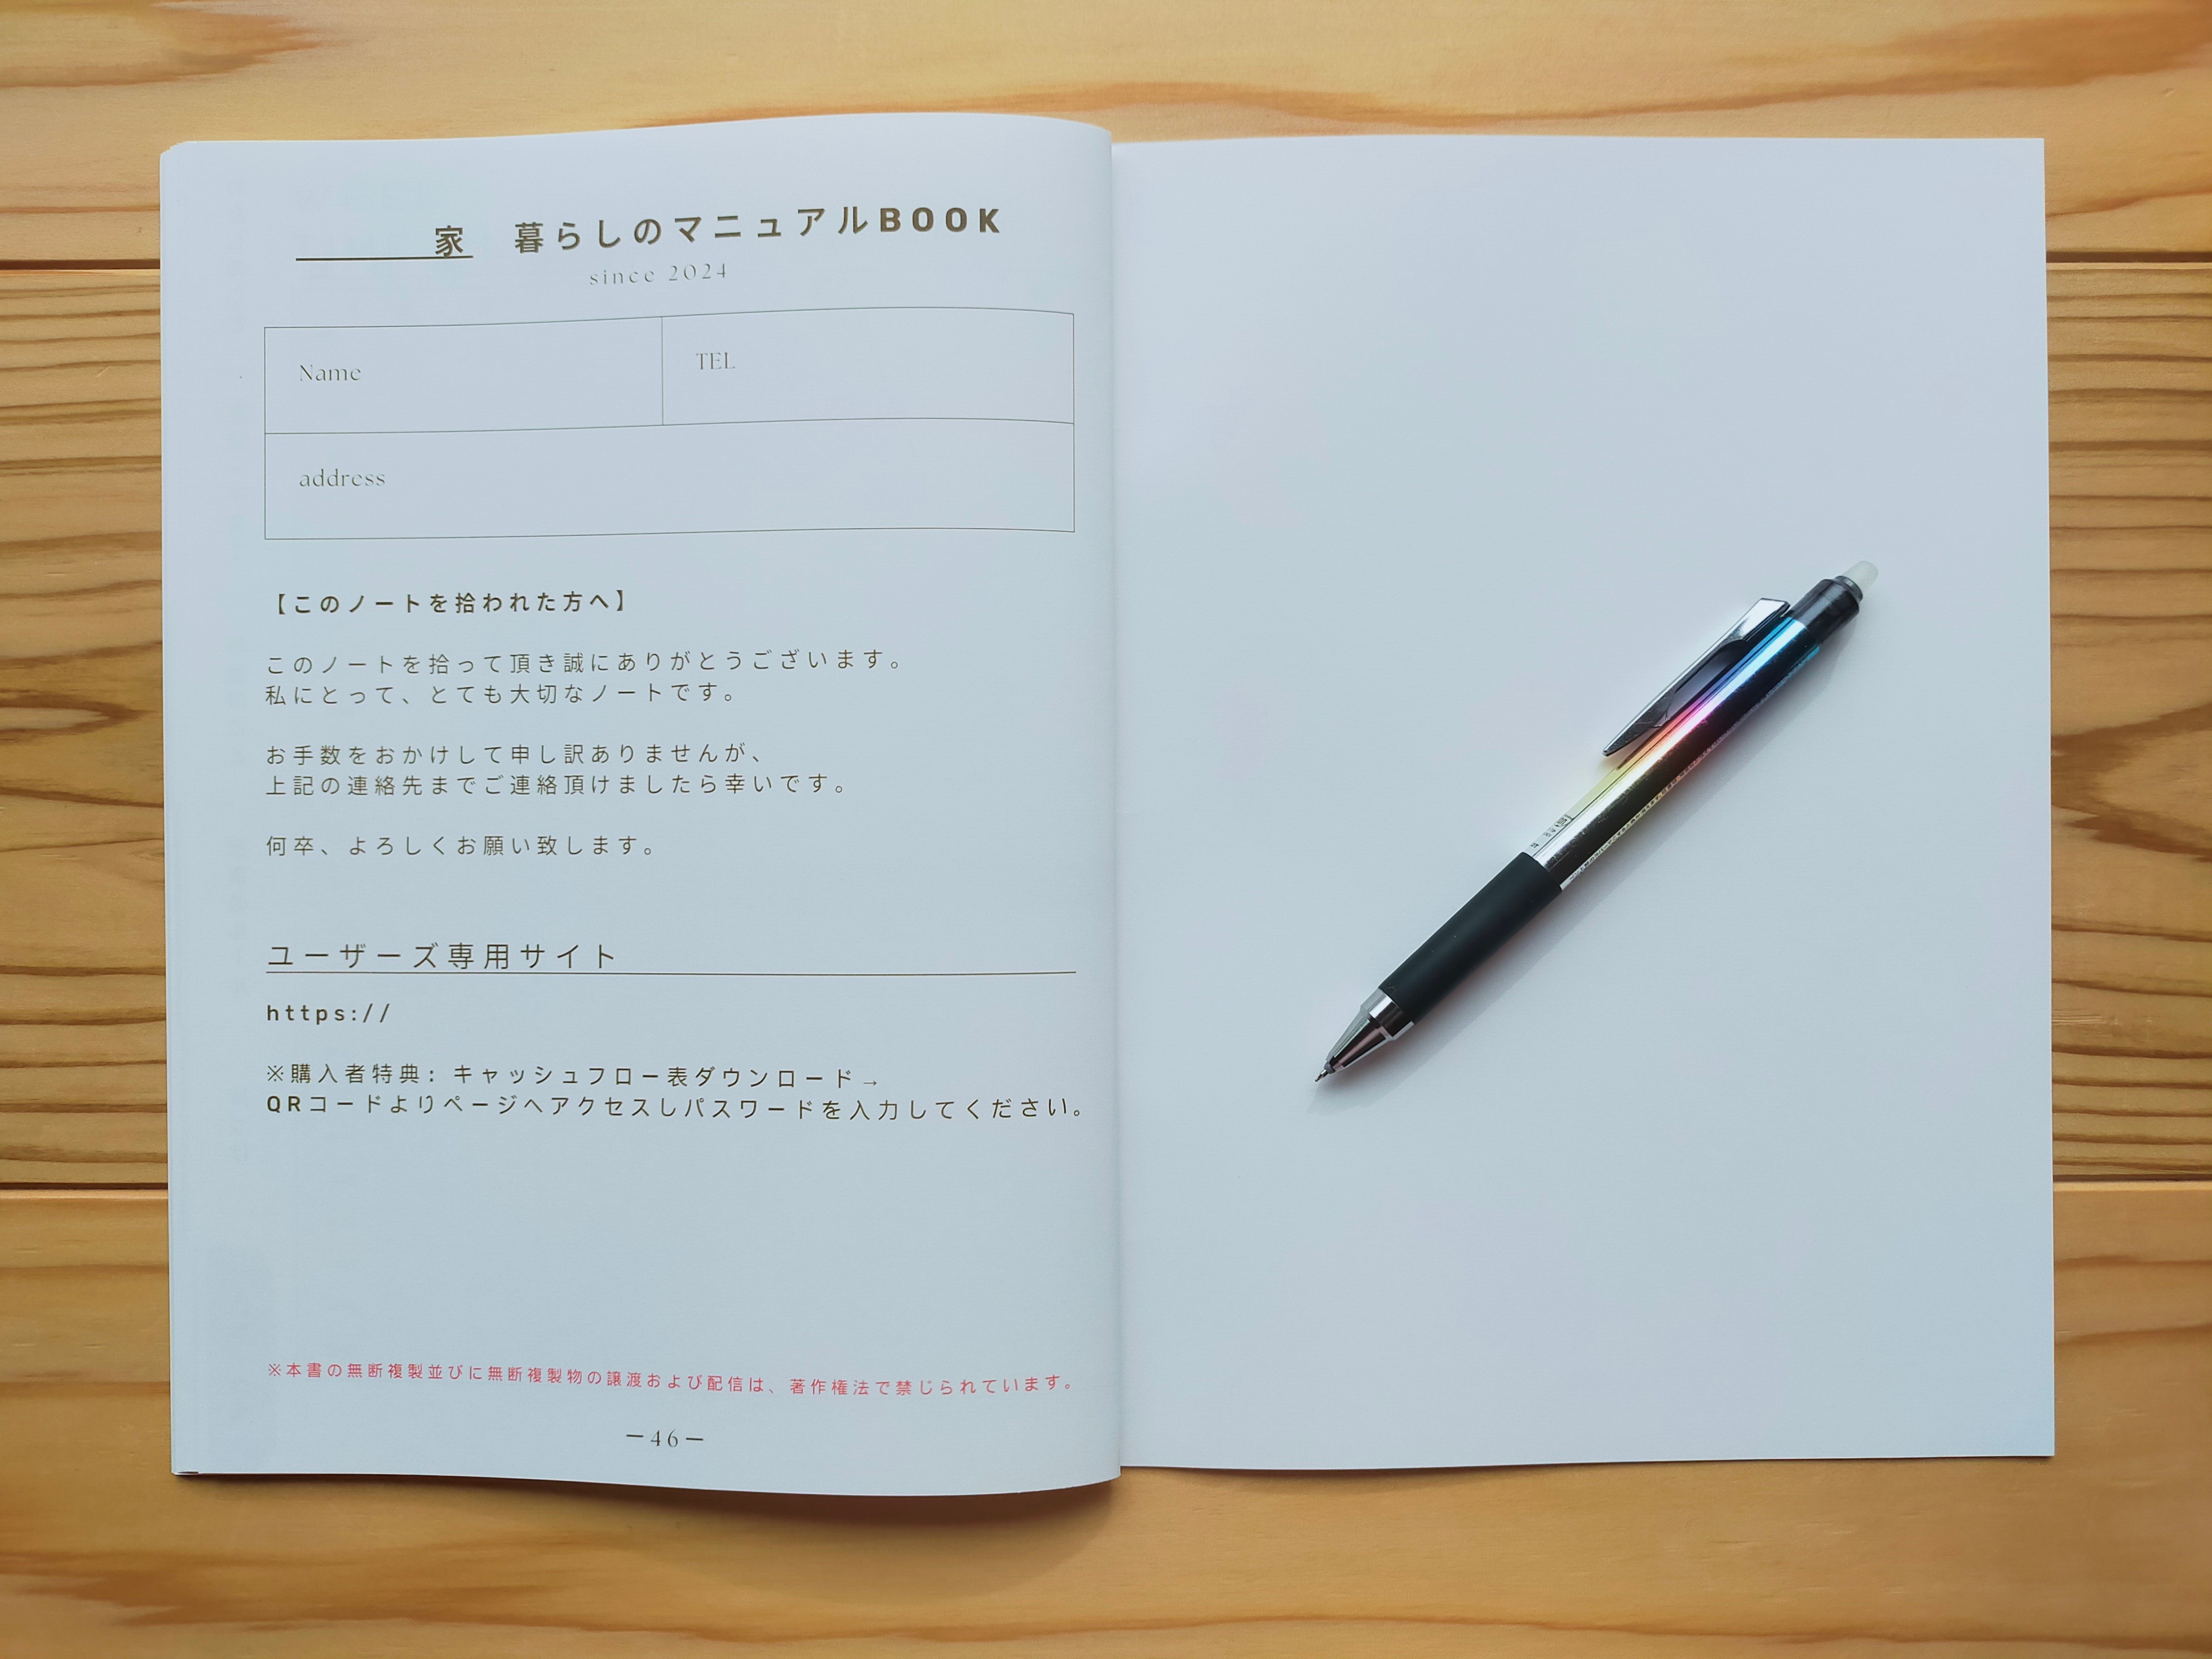 家 暮らしのマニュアルBOOK
since 2024
Name
TEL
address
【このノートを拾われた方へ】
このノートを拾って頂き誠にありがとうございます。
私にとって、とても大切なノートです。
お手数をおかけして申し訳ありませんが、
上記の連絡先までご連絡頂けましたら幸いです。
何卒、よろしくお願い致します。
ユーザーズ専用サイト
https://
※購入者特典: キャッシュフロー表ダウンロード→
QRコードよりページへアクセスしパスワードを入力してください。
※本書の無断複製並びに無断複製物の譲渡および配信は、著作権法で禁じられています。
ー46ー